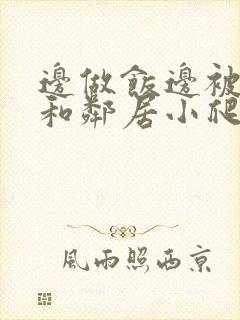 邊做飯邊被
和鄰居小爬
風雨照西京